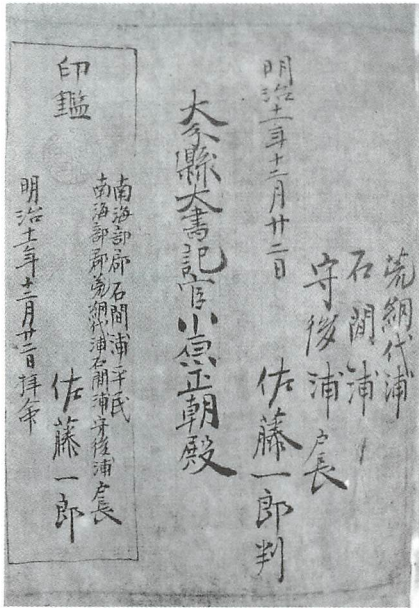 荒網代浦
石間浦
守後浦 戸長
佐藤一郎判
明治十一年十二月廿二日
大分縣大書記官小原正朝殿
印鑑
南海部郡石間浦平民
南海部郡荒網代浦石間浦守後浦戸長
佐藤一郎
明治十一年十二月廿二日拝命